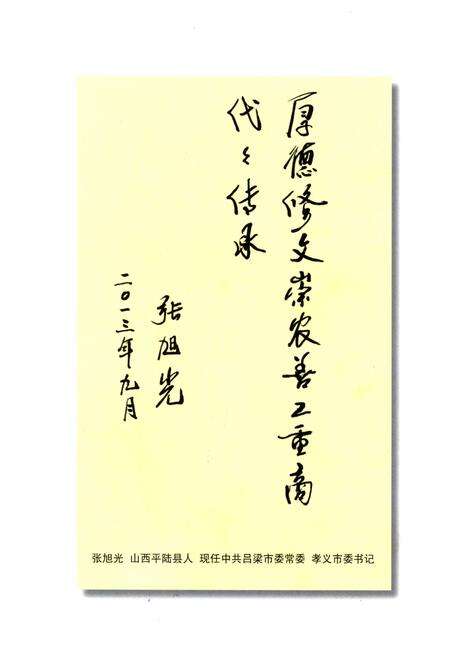 厚德修文崇农善工重商
代々传承
张旭光
二〇一三年九月
张旭光 山西平陆县人 现任中共吕梁市委常委 孝义市委书记